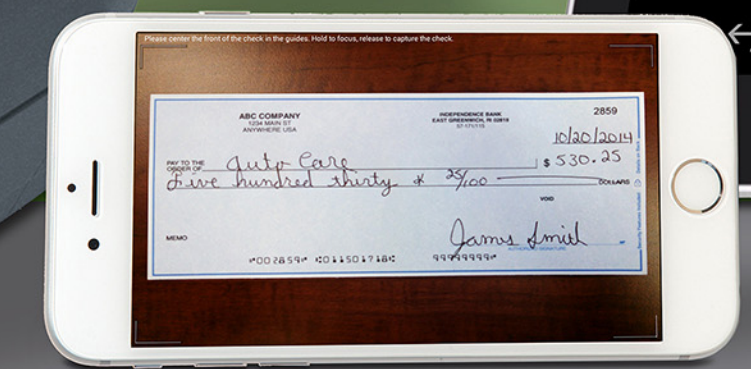 Please center the front of the check in the guides. Hold to focus, release to capture the check.
ABC COMPANY
1234 MAIN ST
ANYWHERE USA
INDEPENDENCE BANK
EAST GREENWICH, RI 02818
57-171/115
2859
10/20/2014
PAY TO THE
ORDER OF Auto Care $ 530.25
Five hundred thirty & 25/100 DOLLARS
Security Features Included Details on Back
VOID
MEMO James Smith
AUTHORIZED SIGNATURE
⑈002859⑈ ⑆011501718⑆ 99999999⑈